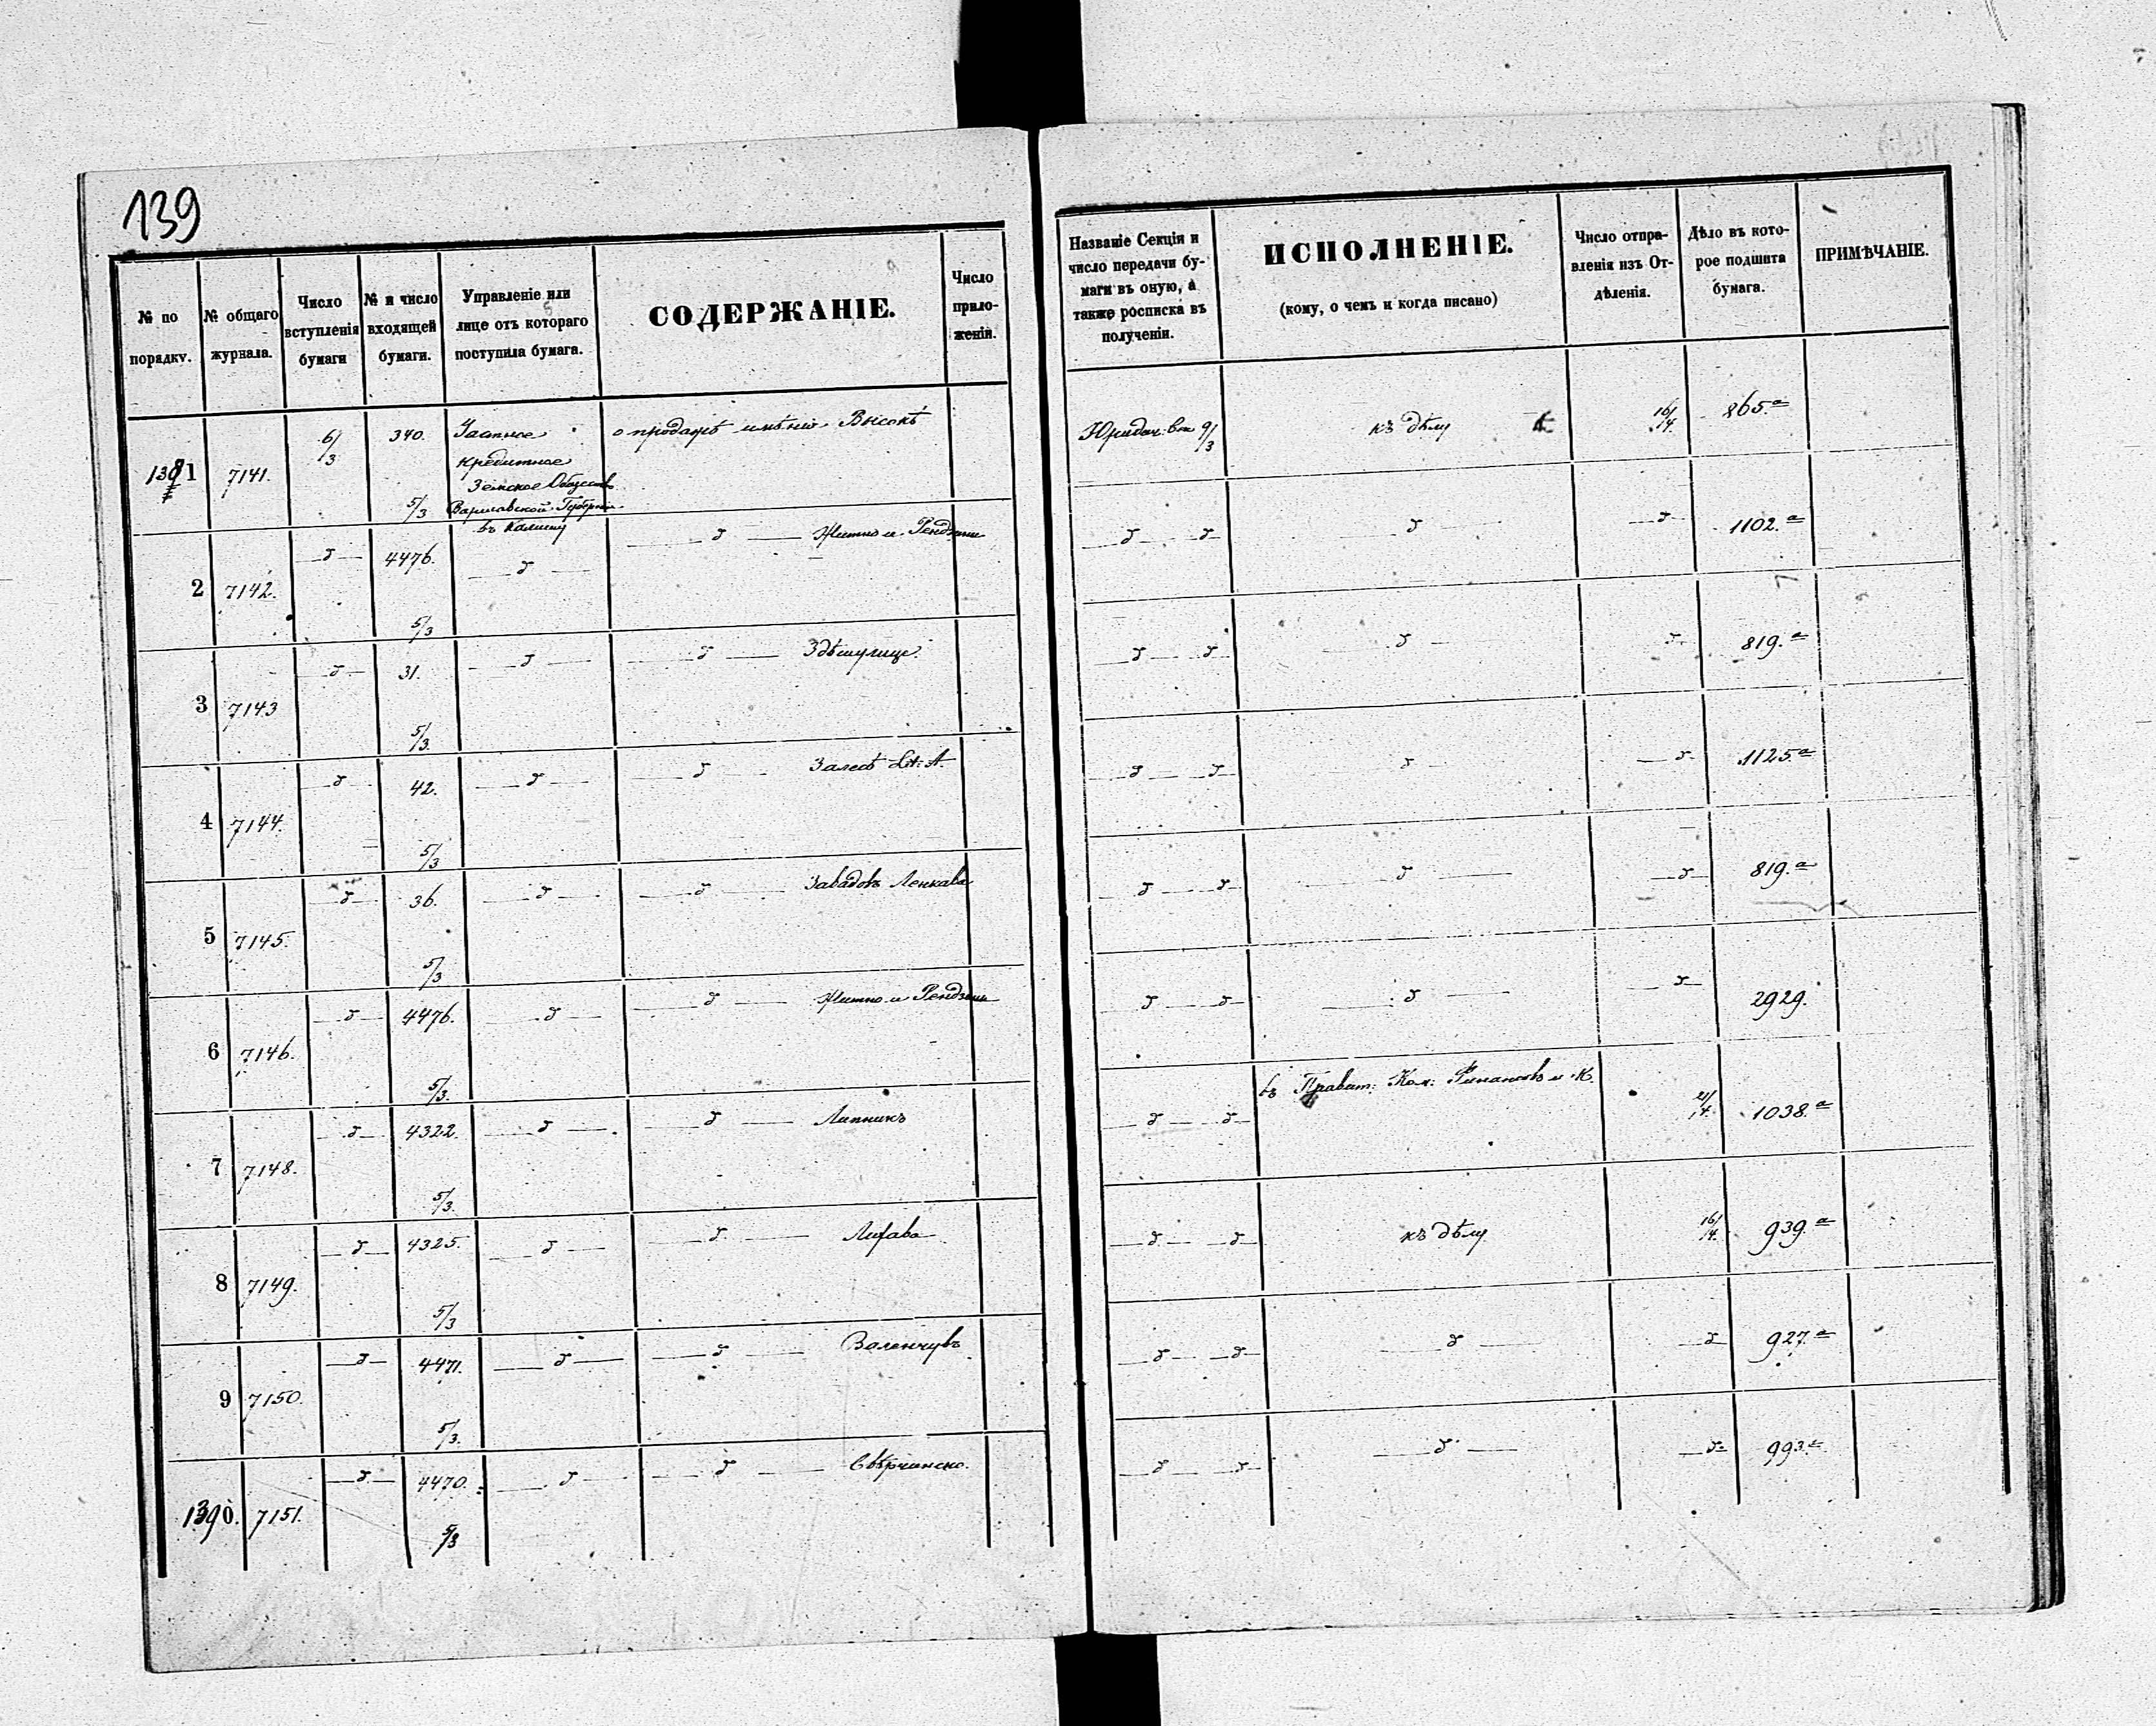 139
№ по порядку.
№ общаго журнала.
Число вступленія бумаги
№ и число входящей бумаги.
Управленіе или лице отъ котораго поступила бумага.
СОДЕРЖАНІЕ.
Число прило-
женій.
Названіе Секціи и
число передачи бу-
маги въ оную, а
также росписка въ
полученіи.
ИСПОЛНЕНІЕ.
(кому, о чемъ и когда писано)
Число отпра-
вленія изъ От-
дѣленія.
Дѣло въ кото-
рое подшита
бумага.
ПРИМѢЧАНІЕ.
1381 7141. 6/3 340. 5/3
Частное
Кредитное
Земское Общество
Варшавской Губерніи
въ Калишу
о продажѣ имѣнія Высокѣ
9/3 къ дѣлу 16/4. 865.а
2 7142. —δ— 4476. 5/3 —δ— —δ— Житно и Рендзины —δ— —δ— —δ— —δ— 1102.а
3 7143 —δ— 31. 5/3. —δ— —δ— —δ— —δ— —δ— —δ— 819.а
4 7144. —δ— 42. 5/3 —δ— —δ— Залесѣ Lit: A. —δ— —δ— —δ— —δ— 1125.а
5 7145. —δ— 36. 5/3 —δ— —δ— Завадовъ Ленкава —δ— —δ— —δ— —δ— 819.а
6 7146. —δ— 4476. 5/3. —δ— —δ— Житно и Рендзины —δ— —δ— —δ— —δ— 2929.
7 7148. —δ— 4322. 5/3. —δ— —δ— Липникъ —δ— —δ— въ Правит: Ком: Финансовъ и К. 21/4. 1038.а
8 7149. —δ— 4325. 5/3 —δ— —δ— —δ— —δ— къ дѣлу 16/4. 939.а
9 7150. —δ— 4471. 5/3. —δ— —δ— Валенчувъ —δ— —δ— —δ— —δ— 927.а
1390. 7151. —δ— 4470. 5/3 —δ— —δ— Свѣрчинско. —δ— —δ— —δ— —δ— 993.а